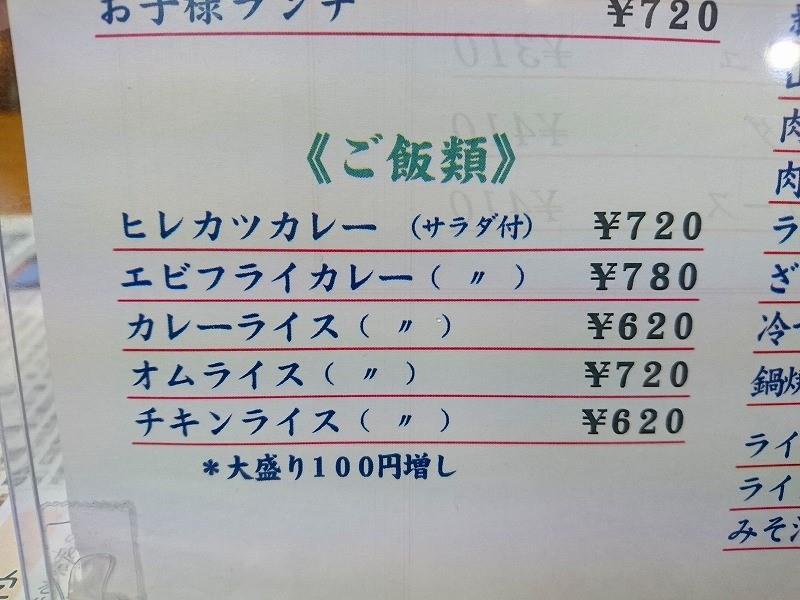 お子様ランチ ¥720
《ご飯類》
ヒレカツカレー (サラダ付) ¥720
エビフライカレー( 〃 ) ¥780
カレーライス( 〃 ) ¥620
オムライス( 〃 ) ¥720
チキンライス( 〃 ) ¥620
*大盛り100円増し
肉
肉
ラ
ざ
冷
鍋焼
ライ
ライ
みそ汁